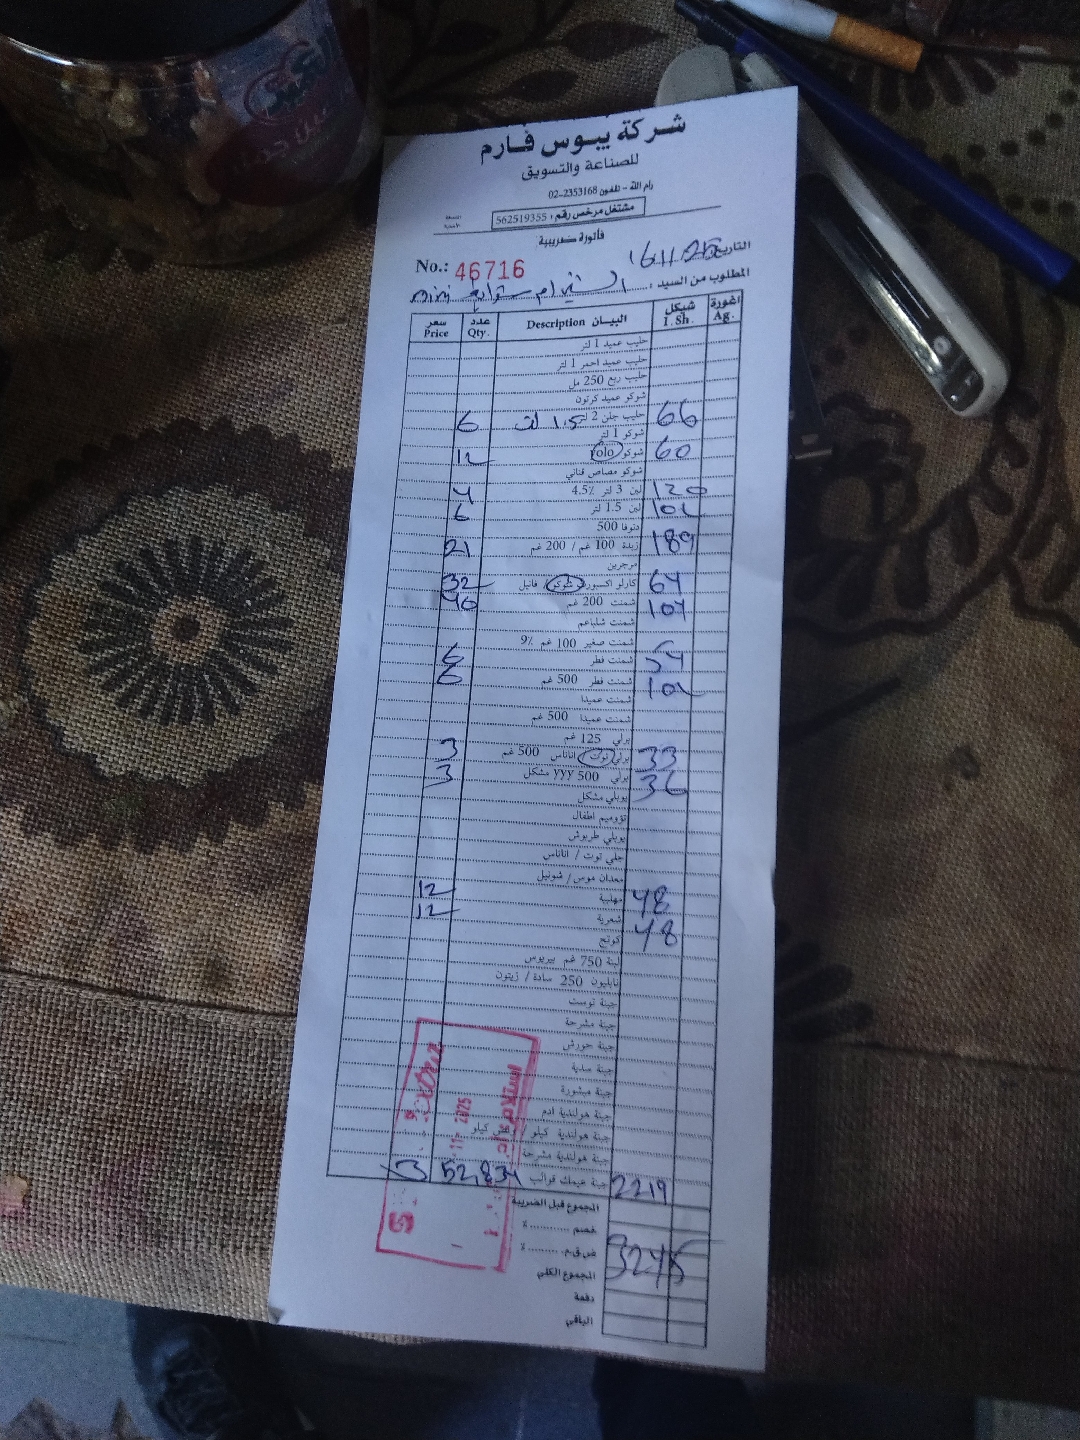 شركة يبوس فارم
للصناعة والتسويق
رام الله - تلفون 2353168-02
مشتغل مرخص رقم: 562519355
فاتورة ضريبية
التاريخ 16/11/25
No.: 46716
المطلوب من السيد:
mini
سعر Price عدد Qty. البيان Description شيكل I. Sh. اغورة Ag.
حليب عميد 1 لتر
حليب عميد احمر 1 لتر
حليب ربع 250 مل
شوكو عميد كرتون
6 حليب جلن 2 لتر 1.5 66
شوكو 1 لتر
12 شوكو rolo 60
شوكو مصاص قناني
4 لبن 3 لتر 4.5٪ 120
6 لبن 1.5 لتر 102
دنوفا 500
21 زبدة 100 غم / 200 غم 189
مرجرين
32 كارلو اكسورد شوكو / فانيل 64
شمنت 200 غم 104
شمنت شلباعم
شمنت صغير 100 غم 9٪
6 شمنت فطر 54
6 شمنت فطر 500 غم 102
شمنت عميدا
شمنت عميدا 500 غم
يرلي 125 غم
3 يرلي توت اناناس 500 غم 33
3 يرلي 500 yyy مشكل 36
يوبلي مشكل
يوبلي طربوش
جلي توت / اناناس
12 مهلبية 48
12 شعرية 48
كوتج
لبنة 750 غم بيريوس
نابليون 250 سادة / زيتون
جبنة توست
جبنة مشرحة
جبنة حورش
جبنة صدية
جبنة مبشورة
جبنة هولندية ادم
جبنة هولندية كيلو
جبنة هولندية مشرحة
3 52,834 جبنة عيمك قوالب 2219
المجموع قبل الضريبة
خصم .......... ٪
ض.ق.م. .......... ٪
المجموع الكلي 3245
دفعة
الباقي
11 2025